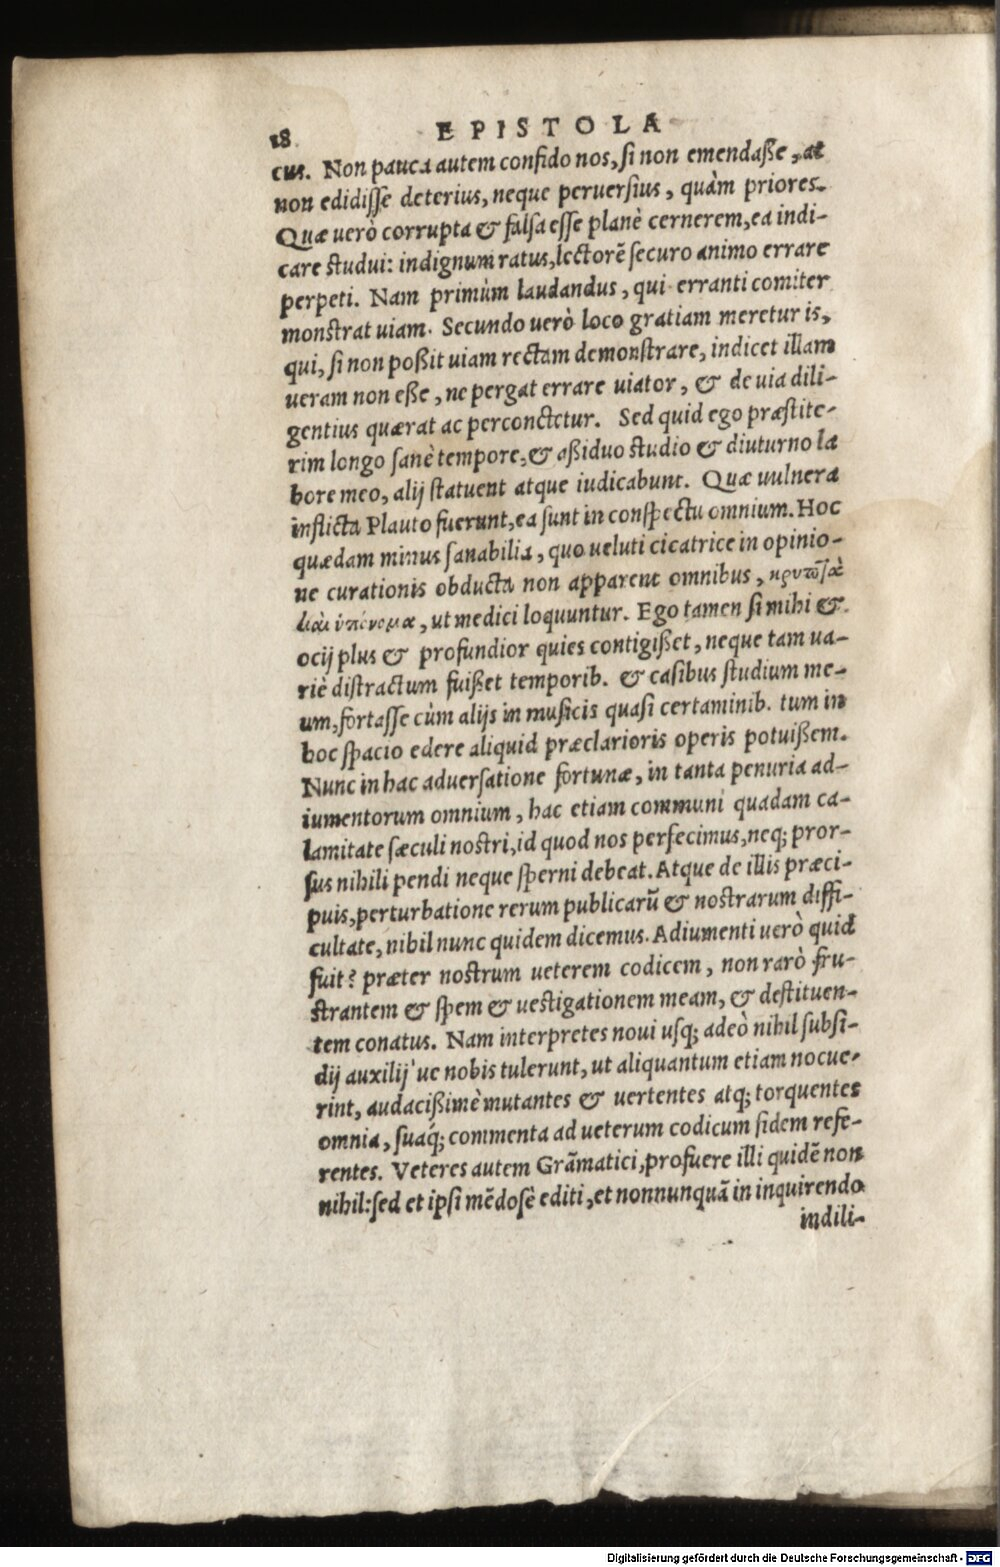 18 EPISTOLA
cus. Non pauca autem confido nos, si non emendaße, at
non edidisse deterius, neque peruersius, quàm priores.
Quæ uerò corrupta & falsa esse planè cernerem, ea indi-
care studui: indignum ratus, lectorē securo animo errare
perpeti. Nam primùm laudandus, qui erranti comiter
monstrat uiam. Secundo uerò loco gratiam meretur is,
qui, si non poßit uiam rectam demonstrare, indicet illam
ueram non eße, ne pergat errare uiator, & de uia dili-
gentius quærat ac perconctetur. Sed quid ego præstite-
rim longo sanè tempore, & aßiduo studio & diuturno la
bore meo, alij statuent atque iudicabunt. Quæ uulnera
inflicta Plauto fuerunt, ea sunt in conspectu omnium. Hoc
quædam minus sanabilia, quo ueluti cicatrice in opinio-
ne curationis obducta non apparent omnibus,
ut medici loquuntur. Ego tamen si mihi &
ocij plus & profundior quies contigißet, neque tam ua-
riè distractum fuißet temporib. & casibus studium me-
um, fortasse cùm alijs in musicis quasi certaminib. tum in
hoc spacio edere aliquid præclarioris operis potuißem.
Nunc in hac aduersatione fortunæ, in tanta penuria ad-
iumentorum omnium, hac etiam communi quadam ca-
lamitate sæculi nostri, id quod nos perfecimus, neq; pror-
sus nihili pendi neque sperni debeat. Atque de illis præci-
puis, perturbatione rerum publicarū & nostrarum diffi-
cultate, nihil nunc quidem dicemus. Adiumenti uerò quid
fuit? præter nostrum ueterem codicem, non rarò fru-
strantem & spem & uestigationem meam, & destituen-
tem conatus. Nam interpretes noui usq; adeò nihil subsi-
dij auxilij'ue nobis tulerunt, ut aliquantum etiam nocue-
rint, audacißimè mutantes & uertentes atq; torquentes
omnia, suaq́; commenta ad ueterum codicum fidem refe-
rentes. Veteres autem Grāmatici, profuere illi quidē non
nihil: sed et ipsi mēdosè editi, et nonnunquā in inquirendo
indili-
Digitalisierung gefördert durch die Deutsche Forschungsgemeinschaft - DFG